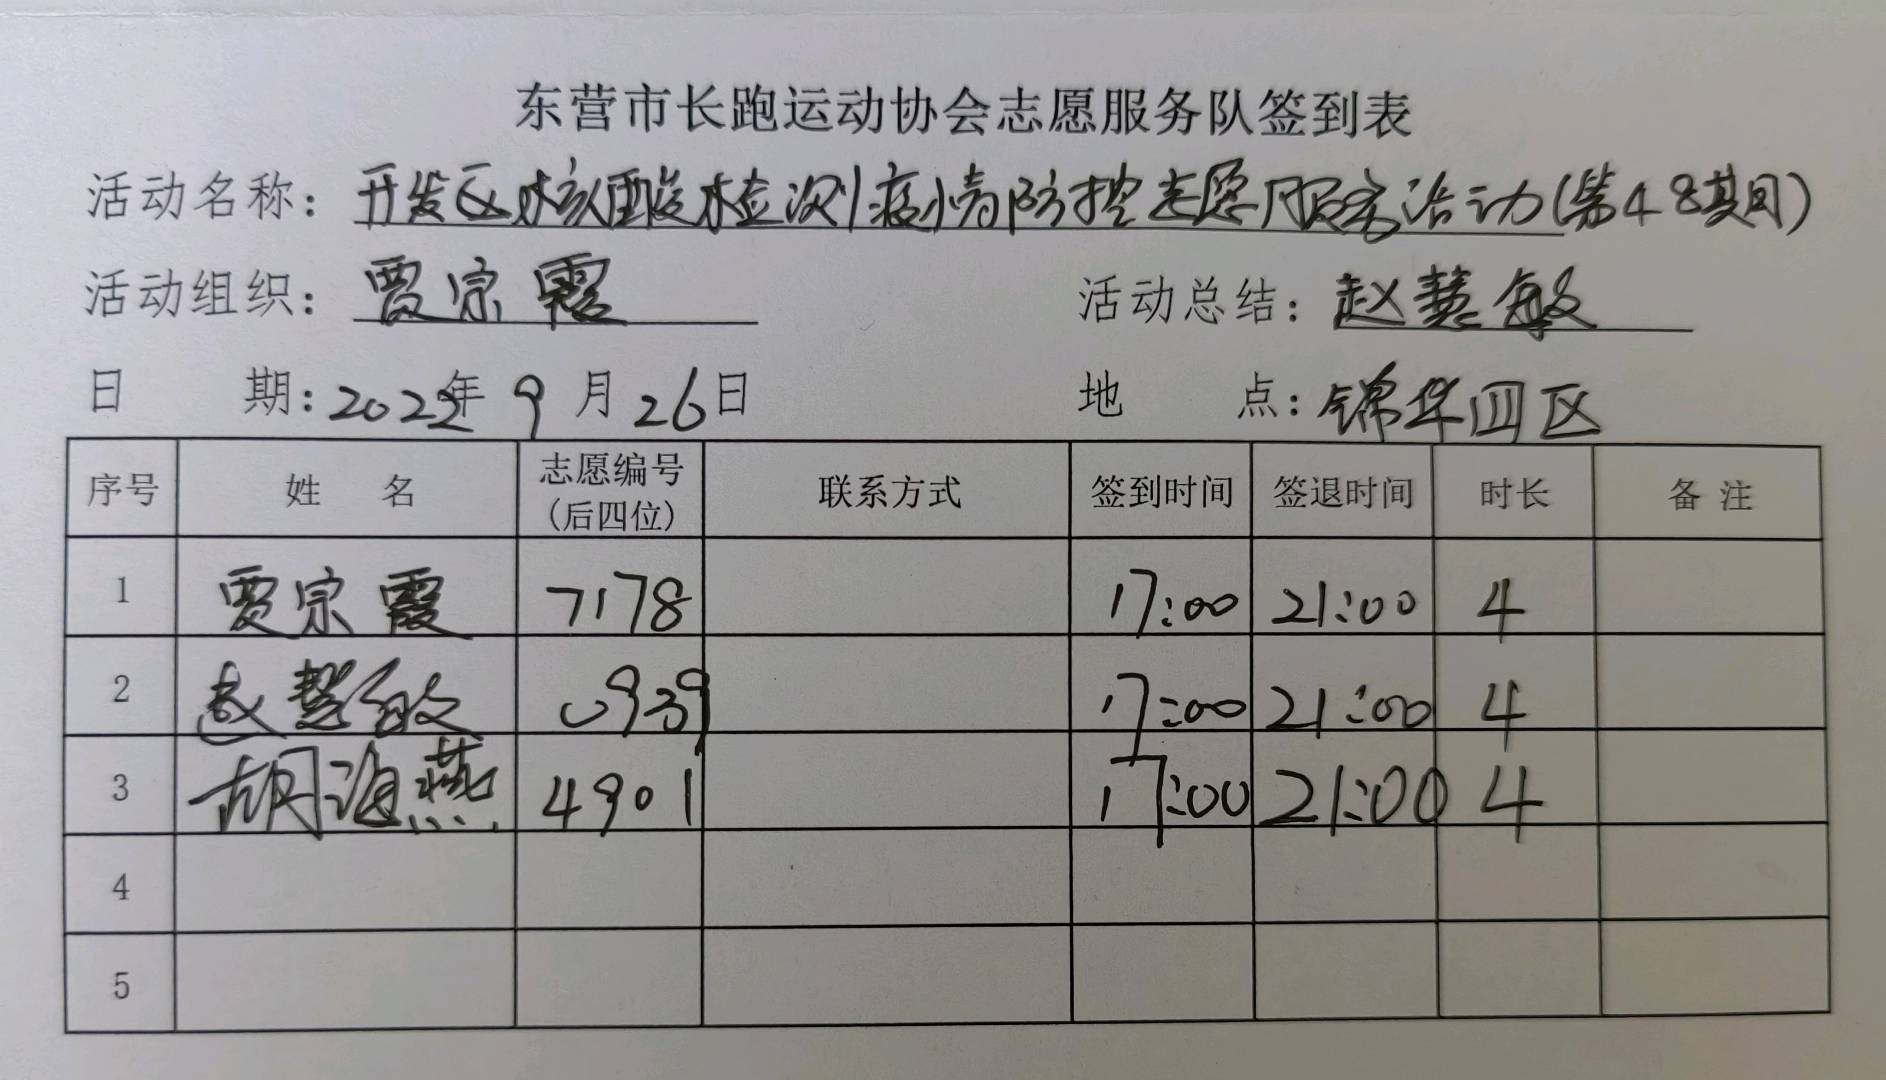 东营市长跑运动协会志愿服务队签到表
活动名称：开发区核酸检测疫情防控志愿服务活动(第48期)
活动组织：贾宗霞 活动总结：赵慧敏
日 期：2022年9月26日 地 点：锦华四区
序号 姓 名 志愿编号(后四位) 联系方式 签到时间 签退时间 时长 备 注
1 贾宗霞 7178 17:00 21:00 4
2 赵慧敏 0939 17:00 21:00 4
3 胡海燕 4901 17:00 21:00 4
4
5